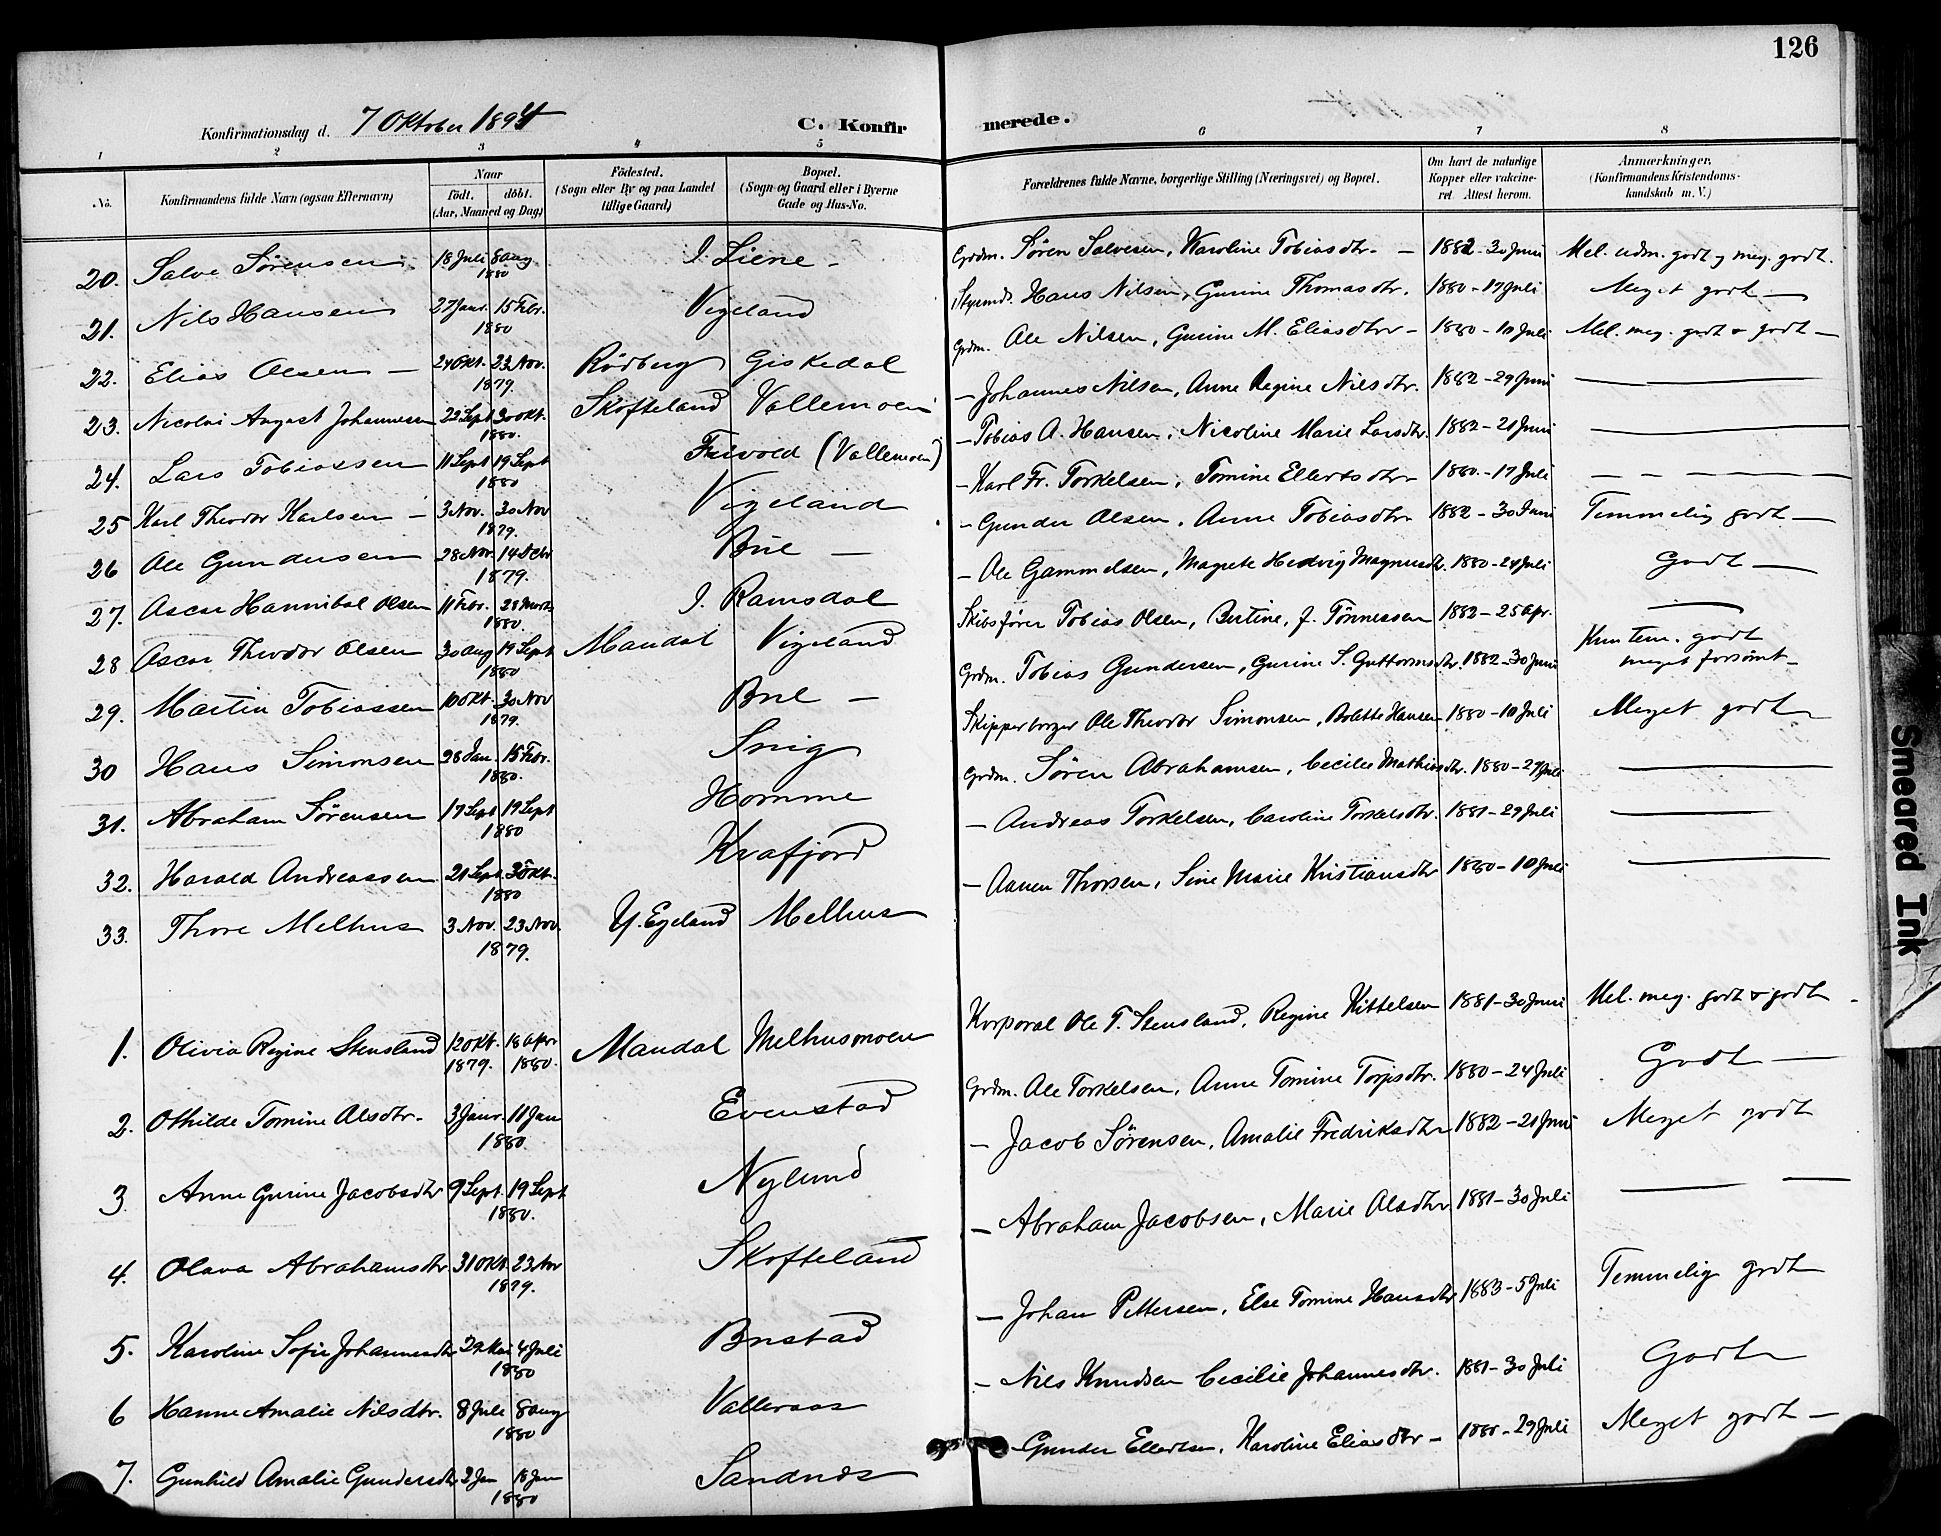 126
Konfirmationsdag d. 7 Oktober 1894 C. Konfirmerede.
1 2 3 4 5 6 7 8
No. Konfirmandens fulde Navn (ogsaa Efternavn) Naar født. døbt. (Aar, Maaned og Dag) Fødested. (Sogn eller By og paa Landet tillige Gaard) Bopæl. (Sogn og Gaard eller i Byerne Gade og Hus-No. Forældrenes fulde Navne, borgerlige Stilling (Næringsvei) og Bopæl. Om havt de naturlige Kopper eller vakcineret Attest herom. Anmærkninger. (Konfirmandens Kristendomskundskab m. V.)
20. Salve Sørensen 18 Juli 8 Aug 1880 I. Liene - Grdm. Søren Salvesen, Karoline Tobiasdtr. - 1882 - 30 Juni Mel. udm. godt og meg. godt.
21. Nils Hansen 27 Janr. 15 Febr. 1880 Vigeland Styrmd. Hans Nilsen, Gurine Thomasdtr. 1880 - 17 Juli Meget godt -
22. Elias Olsen - 24 Okt. 23 Nov. 1879. Rödberg Giskedal Grdm. Ole Nilsen, Gurine M. Eliasdtr - 1880 - 10 Juli Mel. meg. godt & godt -
23. Nicolai August Johannesen 29 Sept 30 Okt. 1880. Skofteland Vallemoen - Johannes Nilsen, Anne Regine Nilsdtr. 1882 - 29 Juni
24. Lars Tobiassen 11 Sept 19 Sept 1880 Frivold (Vallemoen) - Tobias A. Hansen, Nicoline Marie Larsdtr. 1882 - 21 Juni
25 Karl Theodor Karlsen - 3 Nov. 30 Nov 1879. Vigeland - Karl Fr. Torkelsen, Tomine Ellertsdtr - 1880. - 17 Juli
26 Ole Gundersen 28 Nov. 14 Debr 1879. Brie - - Gunder Olsen, Anne Tobiasdtr 1882 - 30 Juni Temmelig godt -
27. Oscar Hannibal Olsen 11 Febr. 28 Marts 1880. I. Ramsdal - Ole Gammelsen, Magrete Hedvig Magnusdtr. 1880 - 24 Juli Godt -
28 Oscar Theodor Olsen 30 Aug 19 Sept 1880 Mandal Vigeland Skibsfører Tobias Olsen, Bertine, f. Tönnessen 1882 - 25 Apr. -
29. Martin Tobiassen 10 Okt. 30 Nov 1879. Brie - Grdm. Tobias Gundersen, Gurine S. Guttormsdtr. 1882 - 30 Juni Kun tem. godt meget forsömt -
30 Hans Simonsen 28 Jan. 15 Febr. 1880. Snig Skipperborger Ole Theodor Simonsen, Bolette Hansen 1880 - 10 Juli Meget godt
31. Abraham Sørensen 17 Sept 19 Sept 1880 Homme Grdm. Søren Abrahamsen, Cecilie Mathiasdtr. 1880 - 27 Juli
32. Harald Andreassen 21 Sept. 3 Okt. 1880 Krafjord - Andreas Torkelsen, Caroline Torkelsdtr. 1881 - 29 Juli
33. Thore Melhus 3 Nov. 23 Nov. 1879. Y. Egeland Melhus - Aanen Thorsen, Sine Marie Kristiansdtr 1880 - 10 Juli
1. Olivia Regine Stensland 12 Okt. 1879. 18 Apr 1880. Mandal Melhusmoen Korporal Ole T. Stensland, Regine Kittelsen 1881 - 30 Juni Mel. meg. godt & godt -
2. Othilde Tomine Olsdtr. 3 Janr. 11 Jan 1880. Evenstad Grdm. Ole Torkelsen, Anne Tomine Torjisdtr. 1880 - 24 Juli Godt -
3. Anne Gurine Jacobsdtr 9 Sept. 19 Sept 1880. Nylund - Jacob Sørensen, Amalie Fredriksdtr 1882 - 21 Juni Meget godt
4. Olava Abrahamsdtr 31 Okt. 23 Nov 1879. Skofteland - Abraham Jacobsen, Marie Olsdtr 1881 - 30 Juli
5. Karoline Sofie Johannesdtr 29 Mai 4 Juli 1880 Bustad - Johan Pettersen, Else Tomine Hansdtr 1883 - 5 Juli Temmelig godt
6 Hanne Amalie Nilsdtr. 8 Juli 8 Aug 1880 Valleraas - Nils Knudsen Cecilie Johannesdtr. 1881 - 30 Juli Godt
7. Gunhild Amalie Gundersdtr 2 Jan 18 Jan 1880 Sandnes - Gunder Ellertsen, Karoline Eliasdtr - 1880 - 29 Juli Meget godt -
Smeared Ink